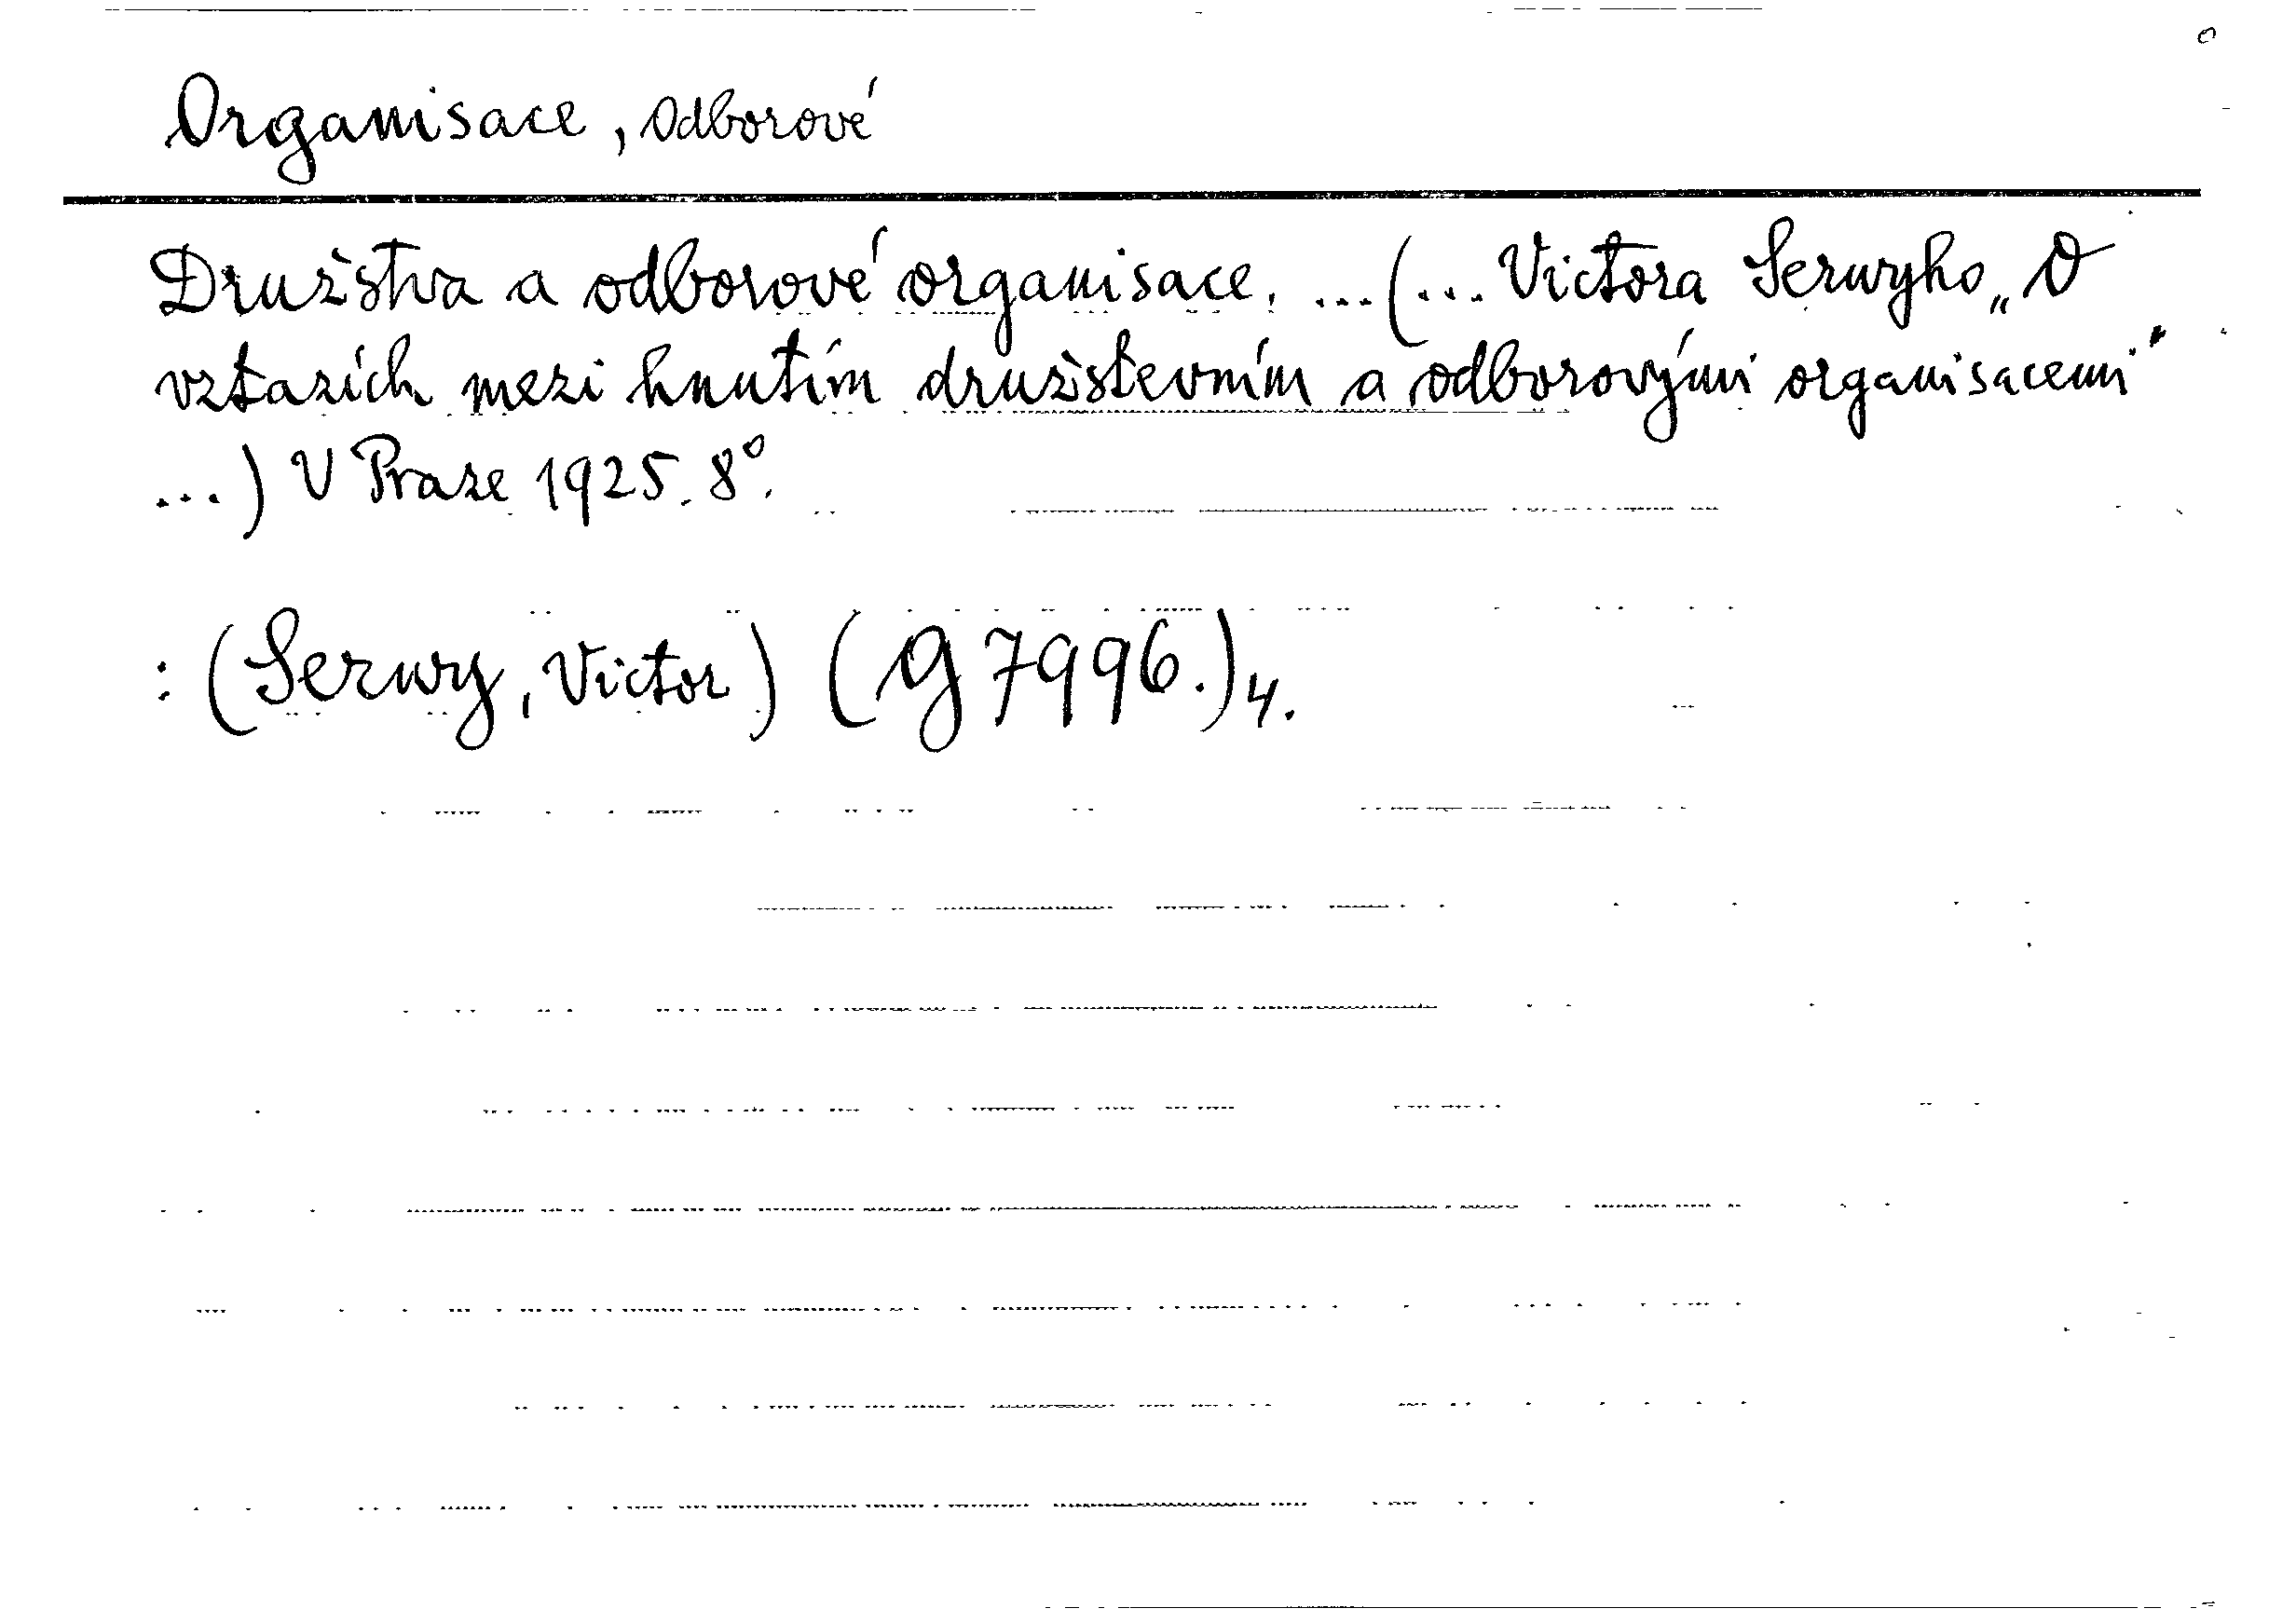 Organisace, odborové
Družstva a odborové organisace. ...(... Victora Serwyho „O
vztazích mezi hnutím družstevním a odborovými organisacemi"
...) V Praze 1925. 8°.
: (Serwy, Victor) (g 7996.)4.